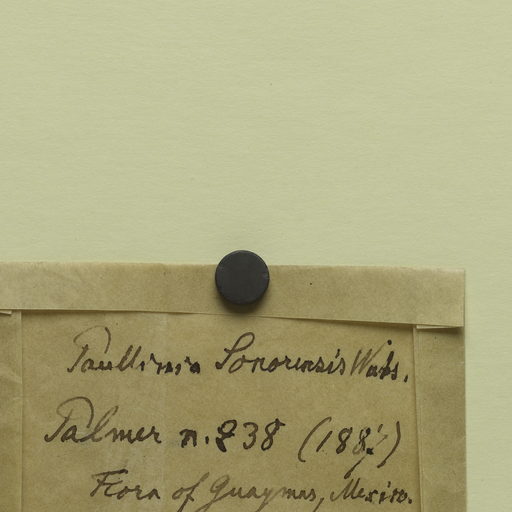 Paullinia Sonorensis Wats.
Palmer n. 238 (1887)
Flora of Guaymas, Mexico.